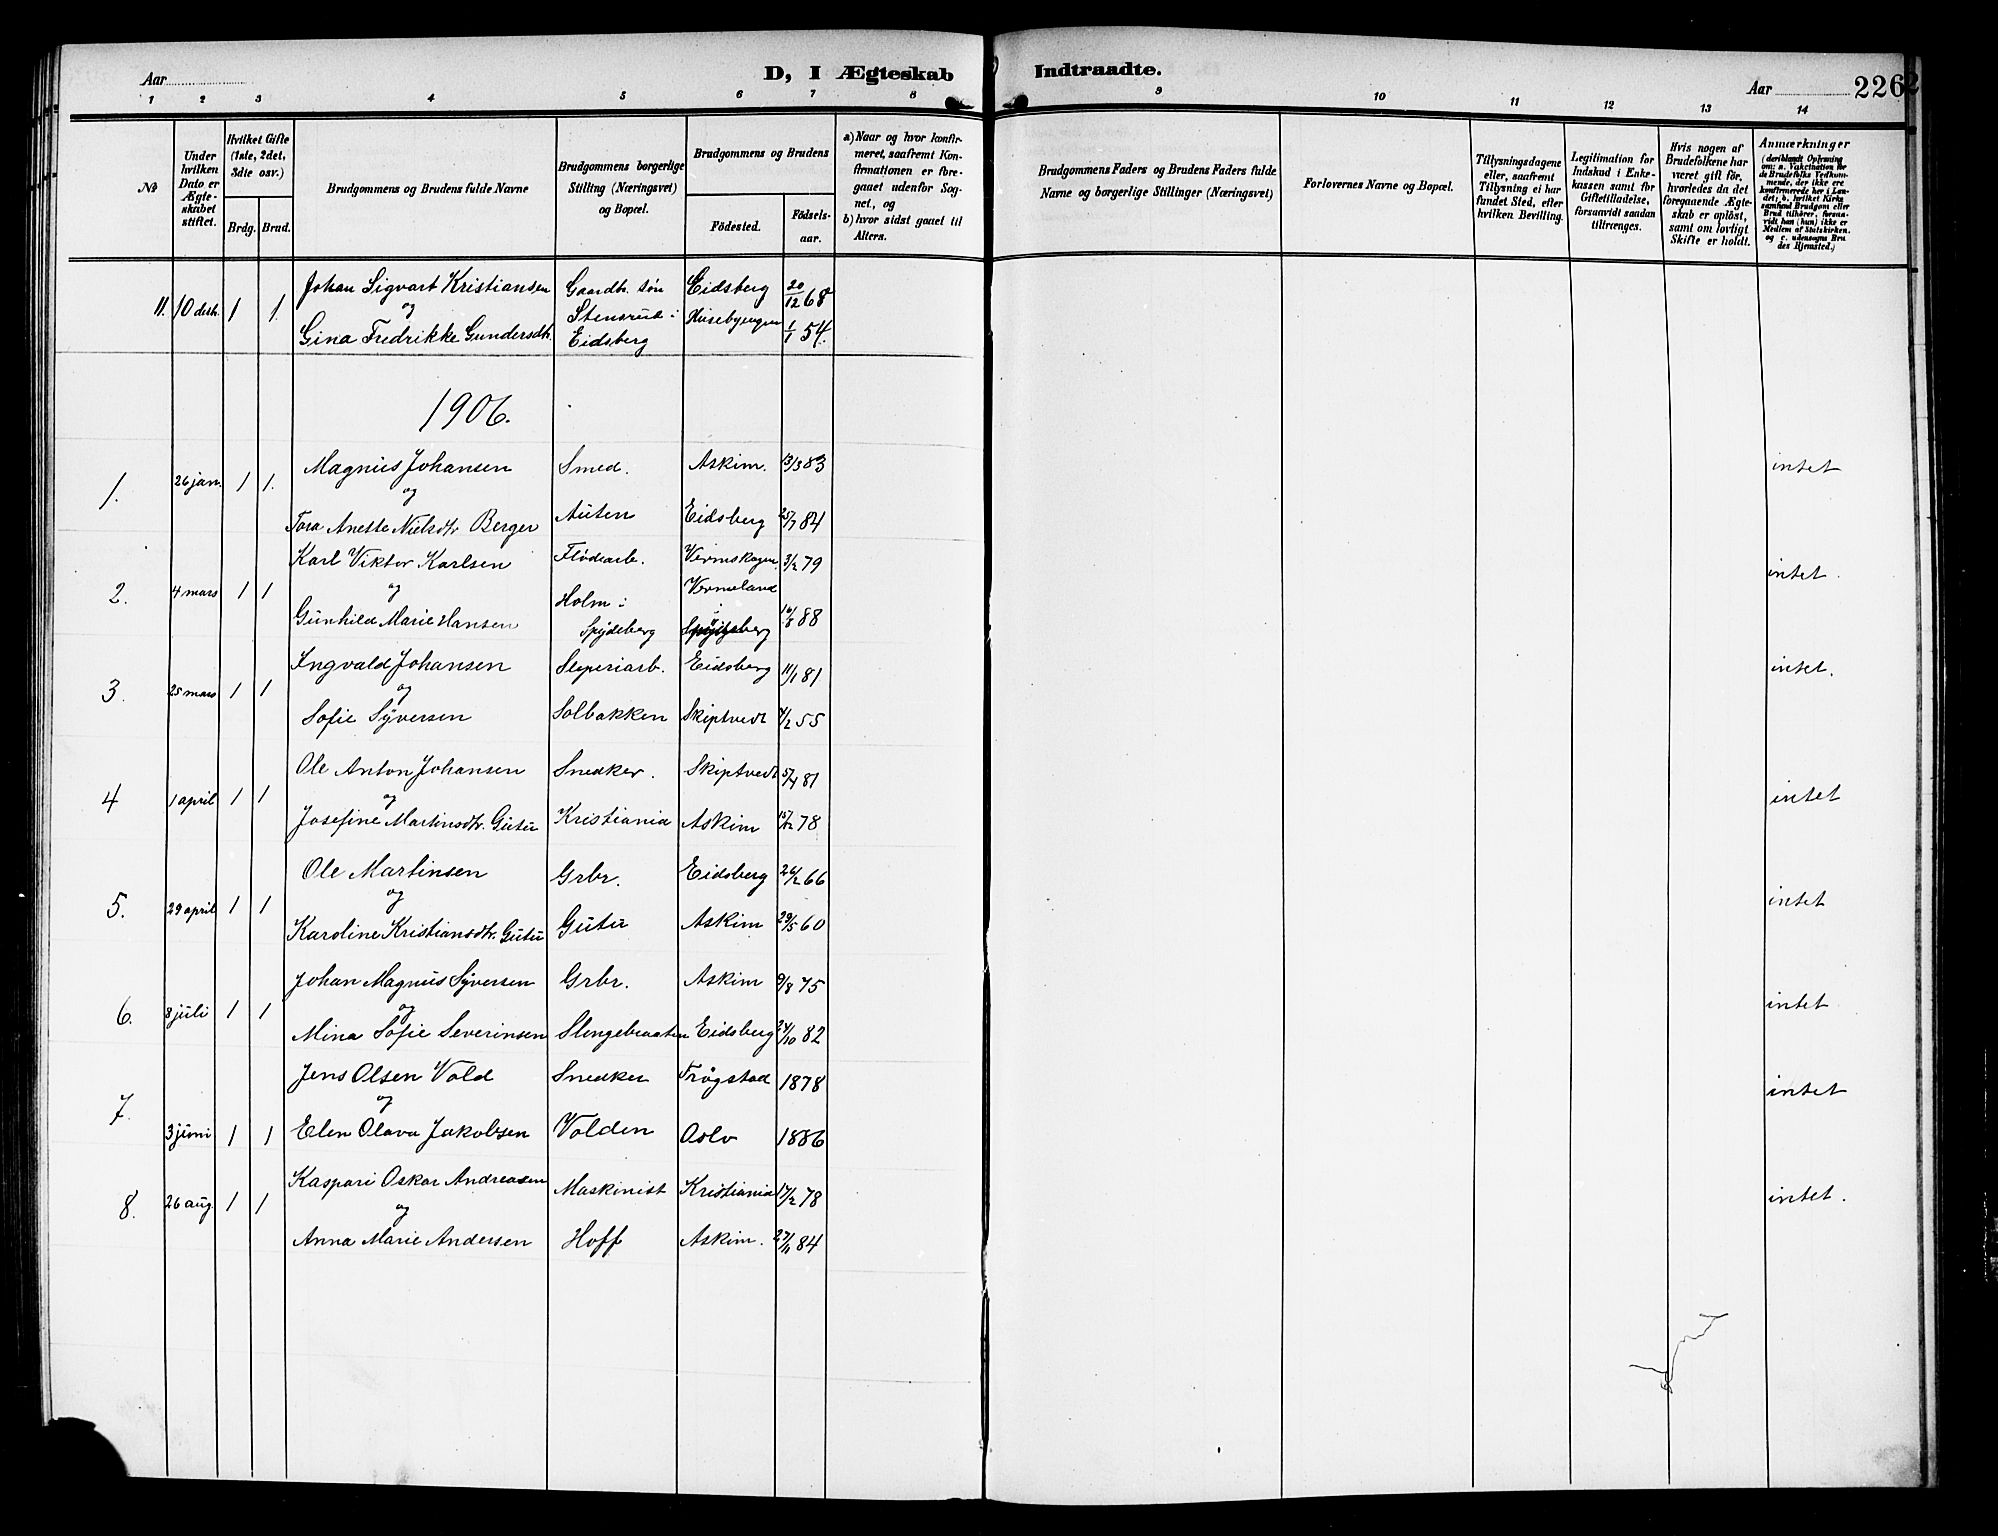 Aar
D, I Ægteskab
Indtraadte.
Aar
226
1 2 3 4 5 6 7 8 9 10 11 12 13 14
No
Under hvilken Dato er Ægteskabet stiftet.
Hvilket Gifte (1ste, 2det, 3dte osv.)
Brdg. Brud.
Brudgommens og Brudens fulde Navne
Brudgommens borgerlige Stilling (Næringsvei) og Bopæl.
Brudgommens og Brudens
Födested.
Födselsaar.
a) Naar og hvor konfirmeret, saafremt Konfirmationen er foregaaet udenfor Sognet, og
b) hvor sidst gaaet til Alters.
Brudgommens Faders og Brudens Faders fulde Navne og borgerlige Stillinger (Næringsvei)
Forlovernes Navne og Bopæl.
Tillysningsdagene eller, saafremt Tillysning ei har fundet Sted, efter hvilken Bevilling.
Legitimation for Indskud i Enkekassen samt for Giftetilladelse, forsaavidt saadan tiltrænges.
Hvis nogen af Brudefolkene har været gift för, hvorledes da det foregaaende Ægteskab er oplöst, samt om lovligt Skifte er holdt.
Anmærkninger
(deriblandt Oplysning om: a. Vakcination for de Brudefolks Vedkommende, der ikke ere konfirmerede her i Landet; b. hvilket Kirkesamfund Brudgom eller Brud tilhörer, forsaavidt han (hun) ikke er Medlem af Statskirken. og c. udensogns Brudes Hjemsted.)
11. 10 desb. 1 1. Johan Sigvart Kristiansen Gaardbr. sön Eidsberg 20/12 68
og Stensrud i
Gina Fredrikke Gundersdtr. Eidsberg Husebyengen 1/1 54.
1906.
1. 26 jan. 1 1. Magnus Johansen Smed. Askim. 13/3 83 intet
og
Tora Anette Nielsdtr Berger Auten Eidsberg 25/7 84
2. 4 mars 1 1 Karl Viktor Karlsen Flödearb. Vermskogen 3/2 79 intet.
og Holm i Vermeland
Gunhild Marie Hansen Spydeberg 88
3. 25 mars 1 1 Ingvald Johansen Sliperiarb. Eidsberg 11/1 81 intet.
og
Sofie Syversen Solbakken Skiptvedt 4/2 55
4 1 april 1 1 Ole Anton Johansen Snedker. Skiptvedt 5/4 81 intet
og
Josefine Martinsdtr. Gutu Kristiania Askim 15/12 78
5. 29 april 1 1 Ole Martinsen Grbr. Eidsberg 26/2 66 intet
og
Karoline Kristiansdtr. Gutu Gutu Askim 29/5 60
6. 8 juli 1 1 Johan Magnus Syversen Grbr. Askim 9/8 75 intet
og
Mina Sofie Severinsen Slengebraaten Eidsberg 24/10 82
7. 3 juni 1 1 Jens Olsen Vold Snedker Trögstad 1878 intet
og
Elen Olava Jakobsen Volden Oslo 1886
8. 26 aug. 1 1 Kaspari Oskar Andreasen Maskinist Kristiania 17/2 78 intet.
og
Anna Marie Andersen Hoff Askim. 27/11 84